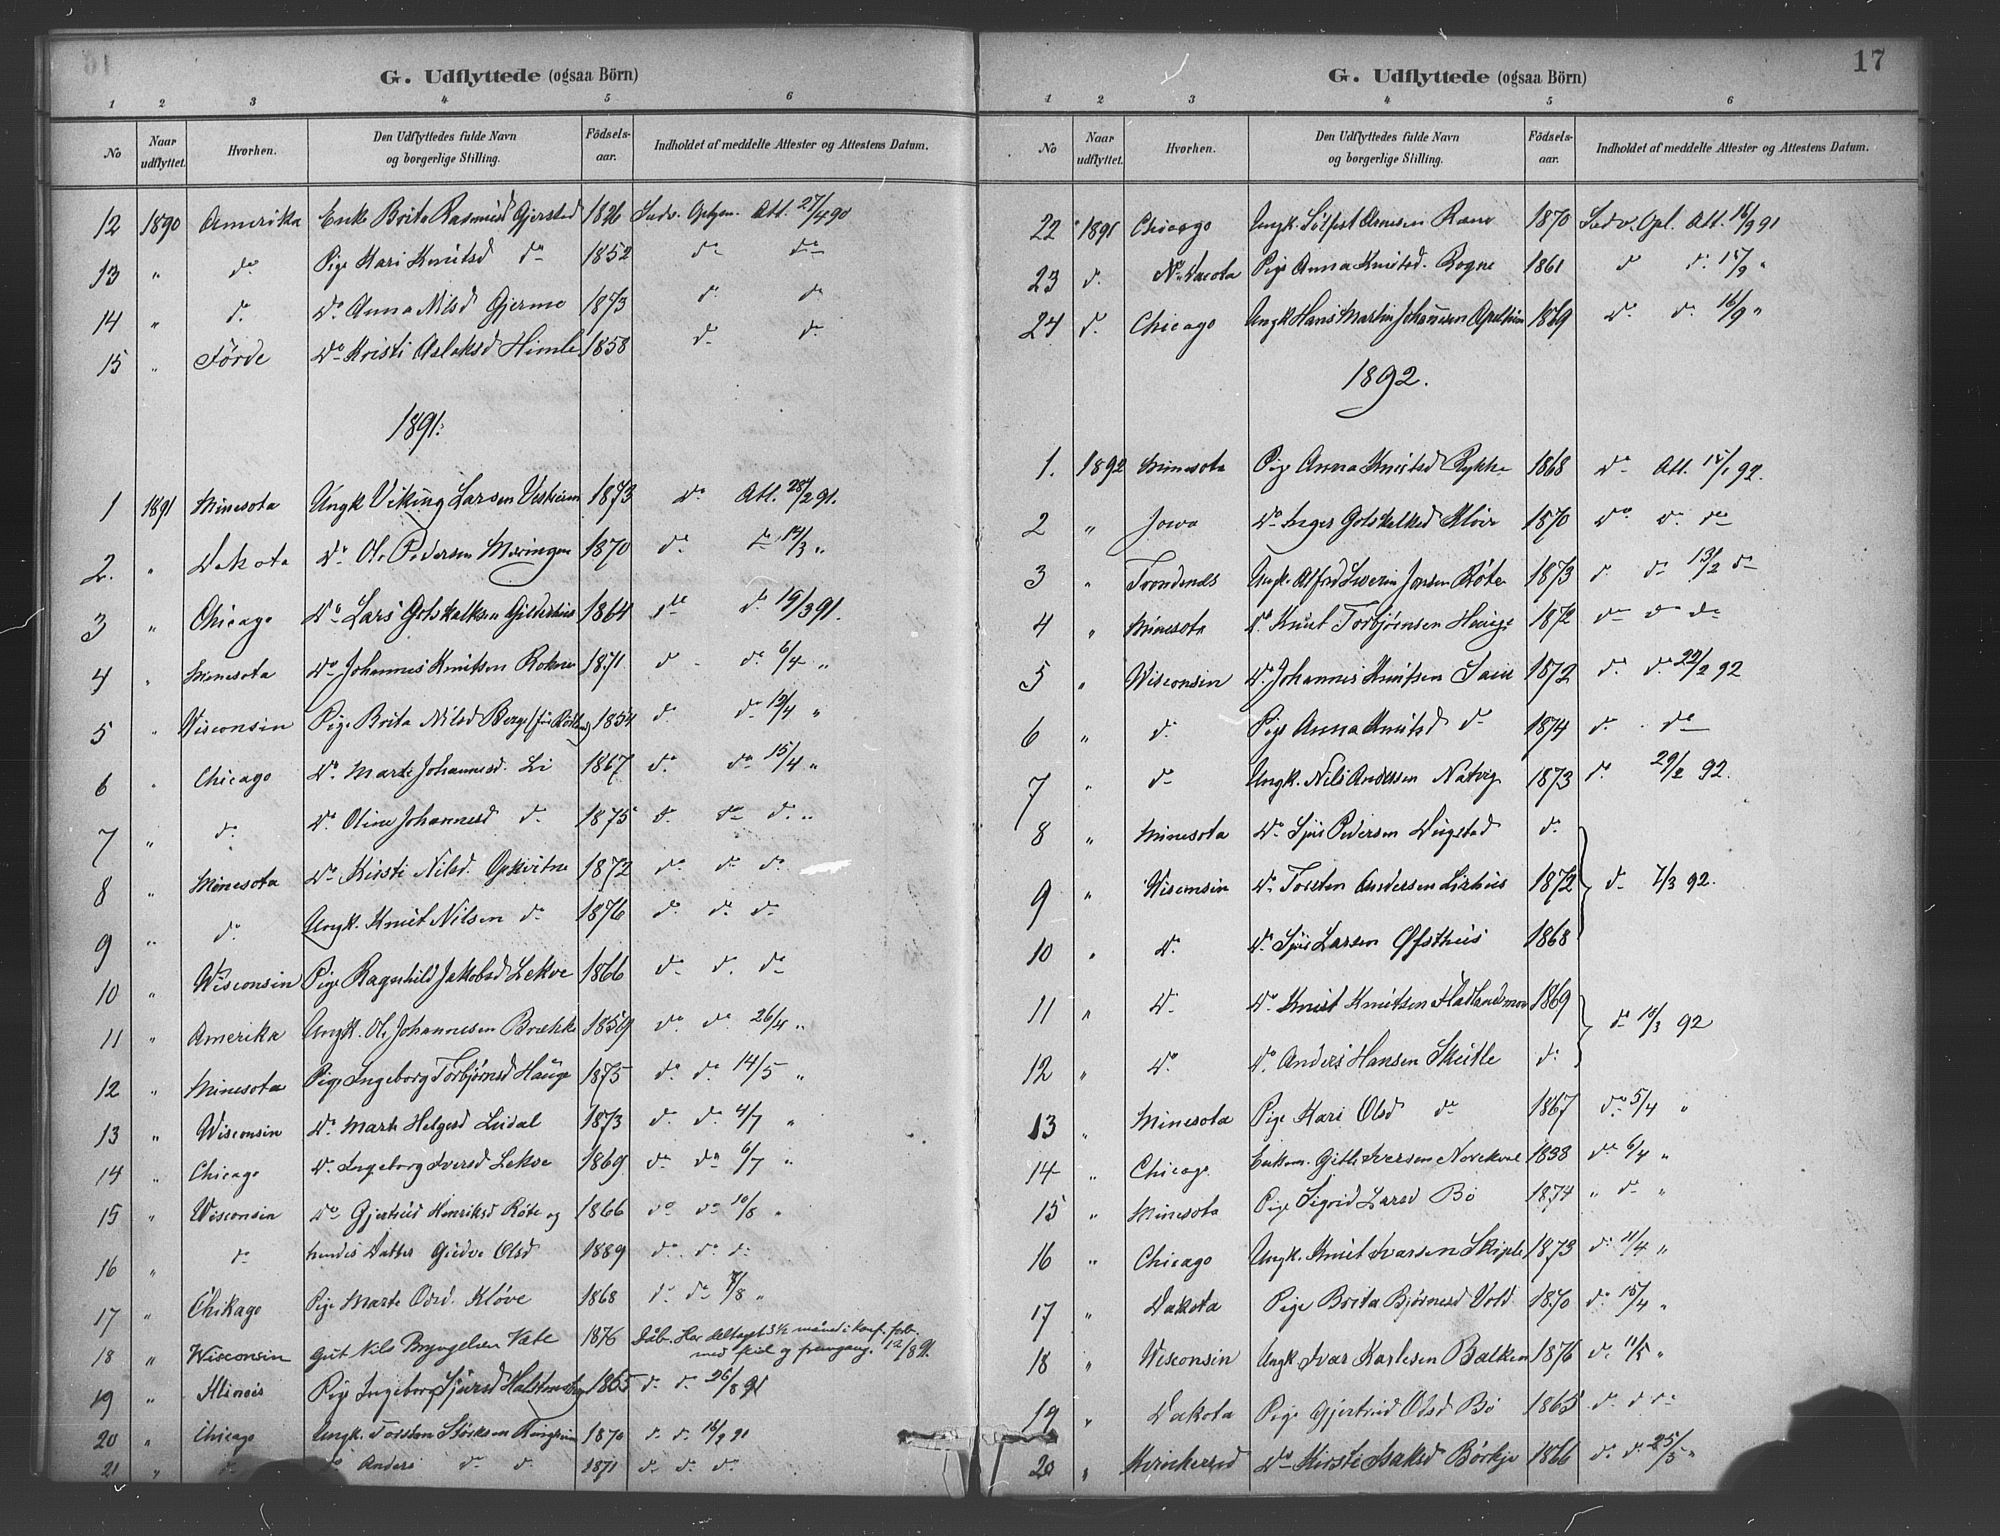 G. Udflyttede (ogsaa Börn)
1 2 3 4 5 6
No Naar udflyttet. Hvorhen. Den Udflyttedes fulde Navn og borgerlige Stilling. Födsels-aar. Indholdet af meddelte Attester og Attestens Datum.
12 1890 Amerika Enke Brita Rasmusd Gjerstad 1826 Indv. Att. 27/4 90
13 " do Pige Kari Knutsd do 1852 do do
14 " do Do Anna Nilsd Gjerme 1873 do do
15 " Förde Do Kristi Aslaksd Himle 1858 do do
1891.
1 1891 Minesota Ungk Viking Larsen 1873 do Att. 28/2 91.
2. " Dakota Do Ole Pedersen 1870 do do 14/3 "
3 " Chicago Do Lars Gotskalksen Gjelderhus 1864 do do 19/3 91.
4 " Minesota Do Johannes Knutsen Rokne 1871 do do 6/4 "
5 " Wisconsin Pige Brita Nilsd Berge 1854 do do 12/4 "
6 " Chicago Do Marta Johannesd. Li 1867 do do 15/4 "
7 " do Do Oline Johannesd do 1875 do do do "
8 " Minesota Do Kirsti Nilsd. 1872 do do do
9 " do Ungk. Knut Nilsen do 1876 do do do
10 " Wisconsin Pige Ragnhild Jakobsd Lekve 1866 do do do
11 " Amerika Ungk. Ole Johannesen Brække 1859 do do 26/4 "
12 " Minesota Pige Ingeborg Torbjørnsd Hauge 1875 do do 14/5 "
13 " Wisconsin Do Marta Helgesd Lidal 1873 do do 4/7 "
14 " Chicago Do Ingeborg Iversd Lekve 1869 do do 6/7 "
15 " Wisconsin Do Gjertrud Henriksd Röte og 1866 do do 10/8 "
16 " do hendes Datter Gudve Olsd 1889 do do do
17 " Chikago Pige Marta Odsd. Kløve 1868 do do 7/8 "
18 " Wisconsin Gut Nils Brynjelsen Væte 1876 Daab. Har deltaget 3½ maaned i konf. forb.
med flid og fremgang. 12/8 91.
19 " Illinois Pige Ingeborg Sjursd 1865 do do 26/8 91
20 " Chicago Ungk. Torsten Størksen Ringheim 1870 do do 16/9 91
21 " do do Anders do do 1871 do do do
17
G. Udflyttede (ogsaa Börn)
1 2 3 4 5 6
No Naar udflyttet. Hvorhen. Den Udflyttedes fulde Navn og borgerlige Stilling. Födsels-aar. Indholdet af meddelte Attester og Attestens Datum.
22 1891 Chicago Ungk. Sjøfest Arnesen 1870 Indv. Opl. Att. 16/9 91
23 d. No Dacota Pige Anna Knutsd. Rogne 1861 d d. 15/9 "
24 d. Chicago Ungk Hans Martin Johansen 1869 do d. 16/9 "
1892.
1. 1892 Minesota Pige Anna Knutsd Rykke 1868 do Att. 15/1 92.
2 " Jowa Do Inger Gotskalksd Kløve 1870 do do do
3 " Trondenes Ungk. Alfred Røte 1873 d. do 13/2 do
4 " Minesota Do Knut Torbjørnsen Hauge 1872 do do do
5 " Wisconsin Do Johannes Knutsen 1872 do do 22/2 92
6 " d. Pige Anna Knutsd do 1874 do do
7 " do Ungk. Nils Andersen Natvig 1873 do 29/2 92.
8 " Minesota Do Sjur Pedersen Dugstad do
9 " Wisconsin Do Torsten Andersen Lirhus 1872 do 7/3 92.
10 " D. Do Sjur Larsen Øfsthus 1868
11 " D. Do Knut Knutsen Fladlandsmoe 1869
do 10/3 92
12 " Do Do Anders Hansen Skutle do
13 " Minesota Pige Kari Olsd do 1867 do 5/4 "
14 " Chicago. Enkem. Gitle Iversen 1838 do 6/4 "
15 " Minesota Pige Sigrid Larsd Bø 1874 " do "
16 " Chicago Ungk. Knut Ivarsen Skiple 1873 do 11/4 "
17 " Dakota Pige Brita Bjørnesd Vold 1870 do 15/4 "
18 " Wisconsin Ungk. Ivar Karlesen Balken 1876 do 11/5 "
19 " Dakota Pige Gjertrud Olsd Bø 1865 do do do
20 " Do Kirsti Isaksd Børkje 1866 do do 25/5 "